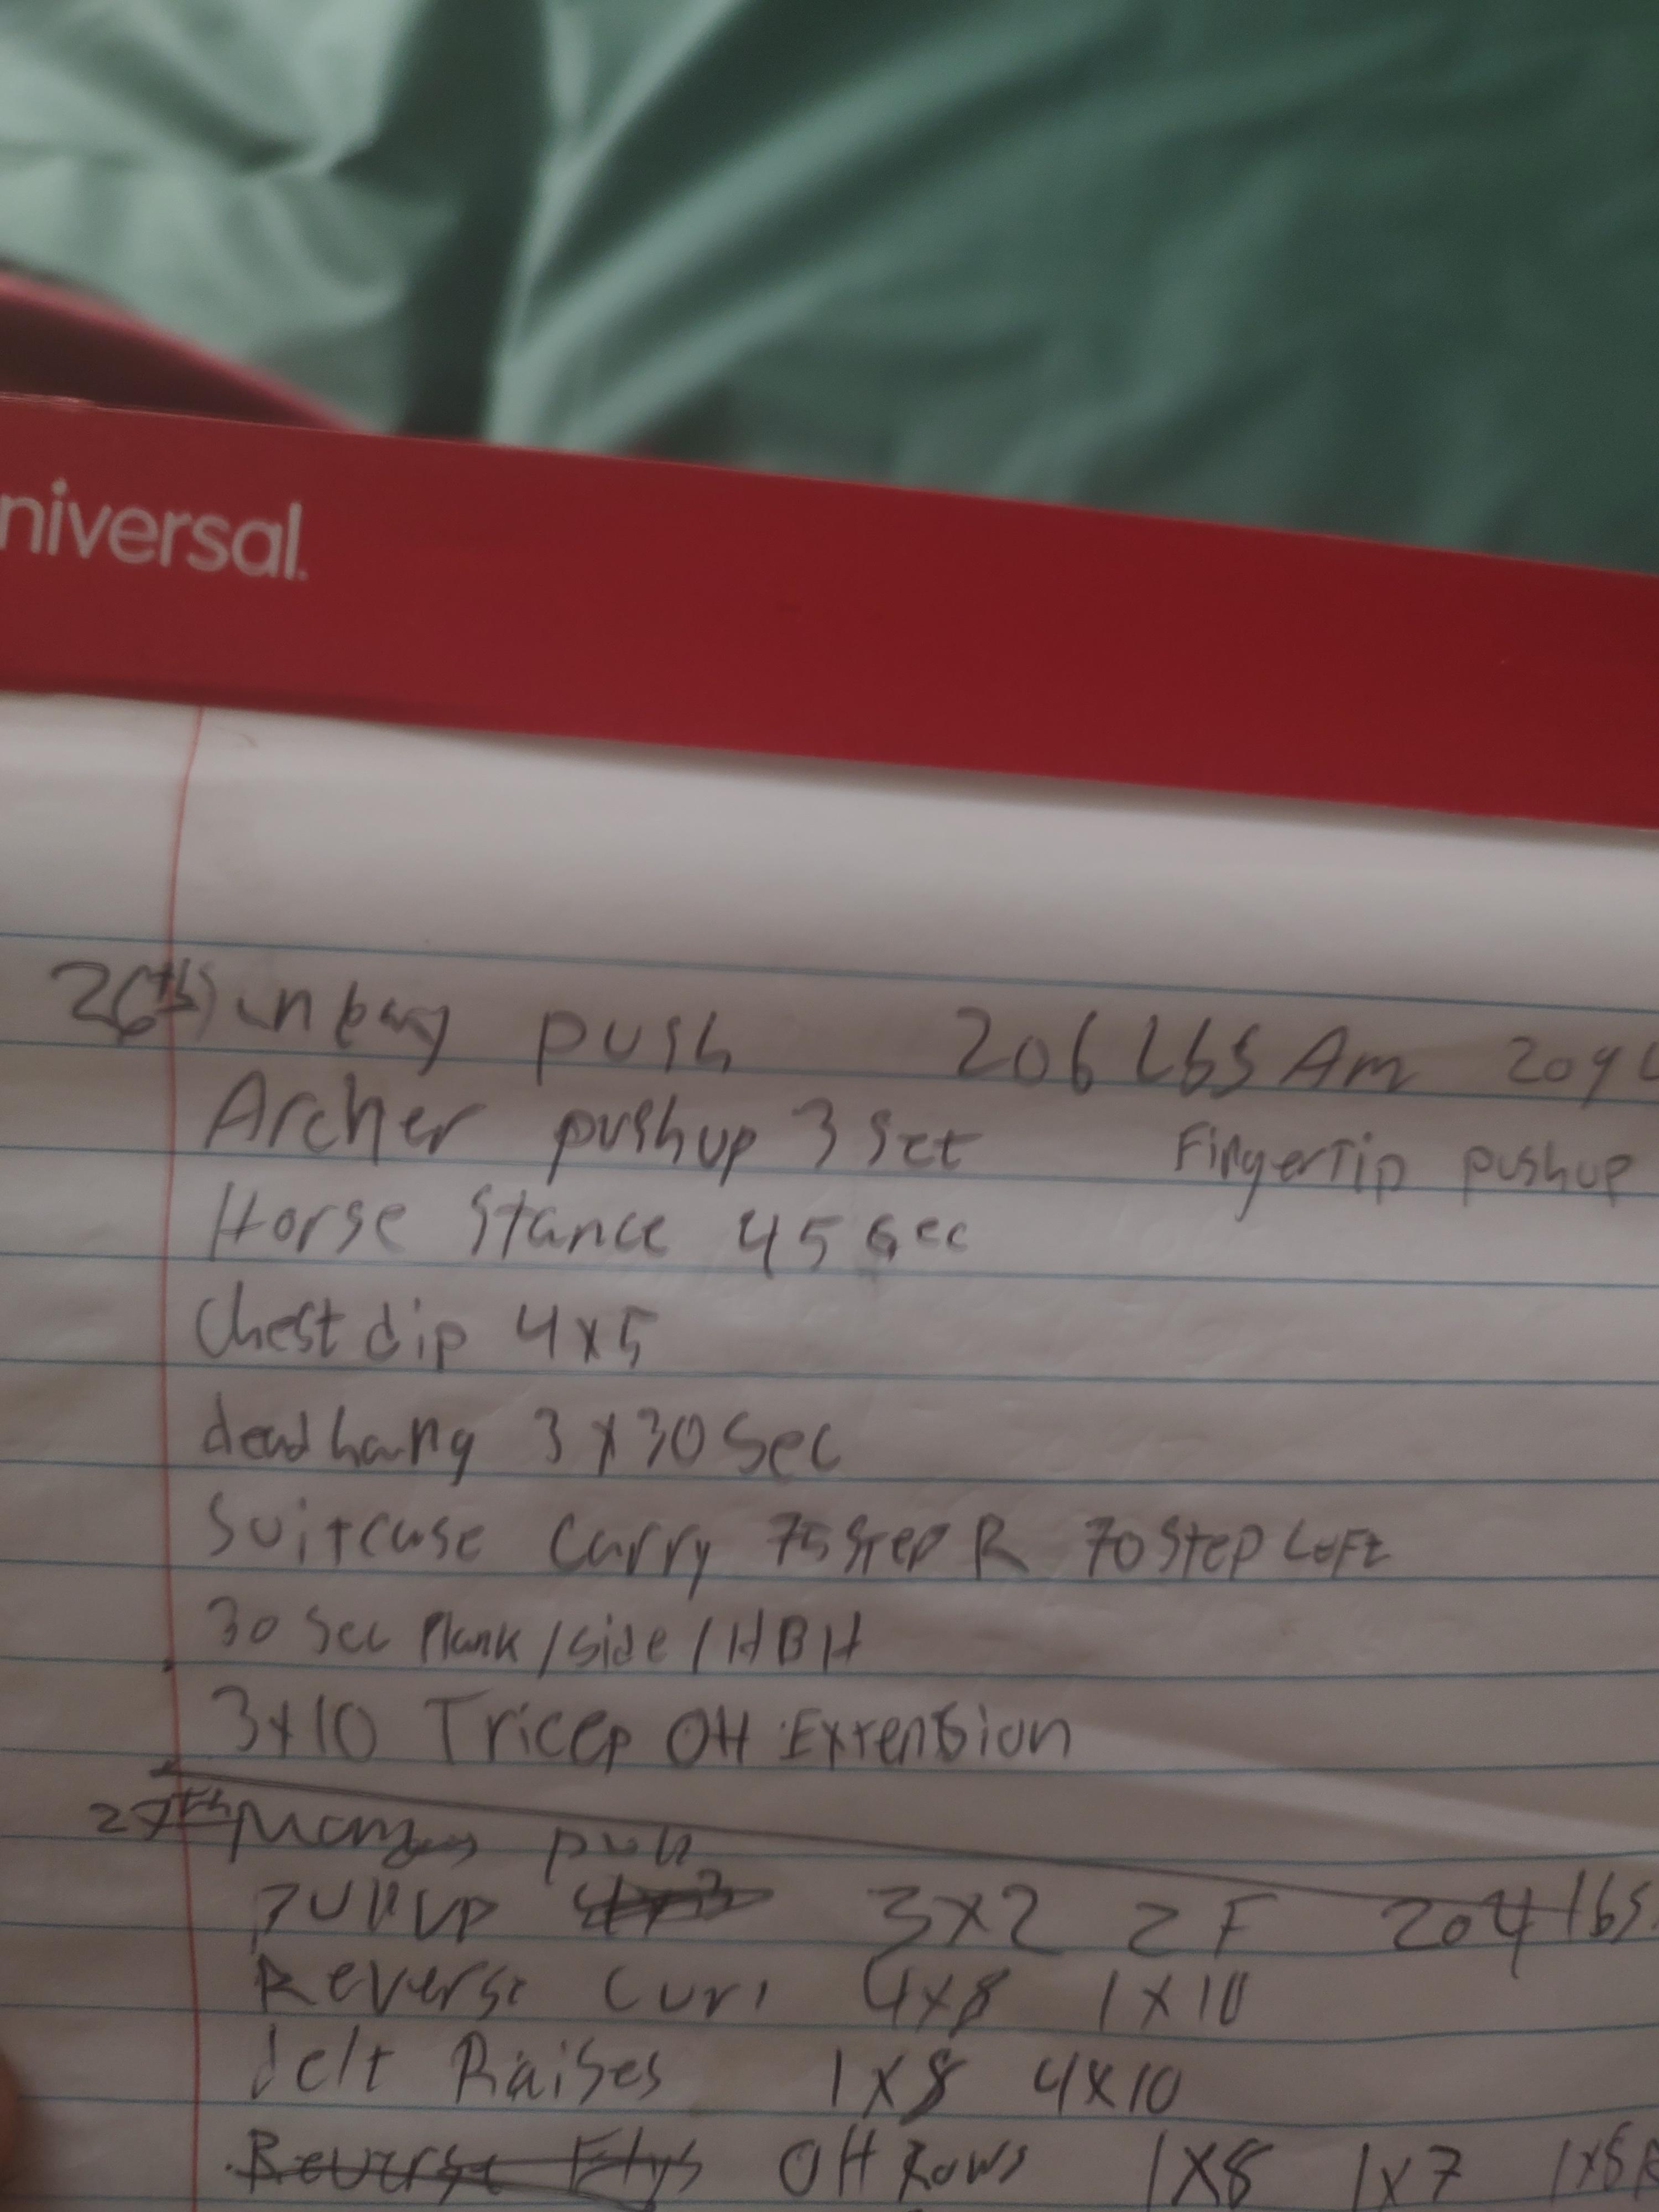 niversal.
26th push 206 Lbs Am 209 L
Archer pushup 3 Set Fingertip pushup
Horse Stance 45 sec
Chest dip 4x5
deadhang 3x30 Sec
Suitcase Carry 75 step R 70 step Left
30 Sec Plank/side/HBH
3x10 Tricep OH Extension
27th pull
Pullup 3x2 2F 204 lbs
Reverse Curl 4x8 1x10
delt Raises 1x8 4x10
Reverse Flys OH Rows 1x8 1x7